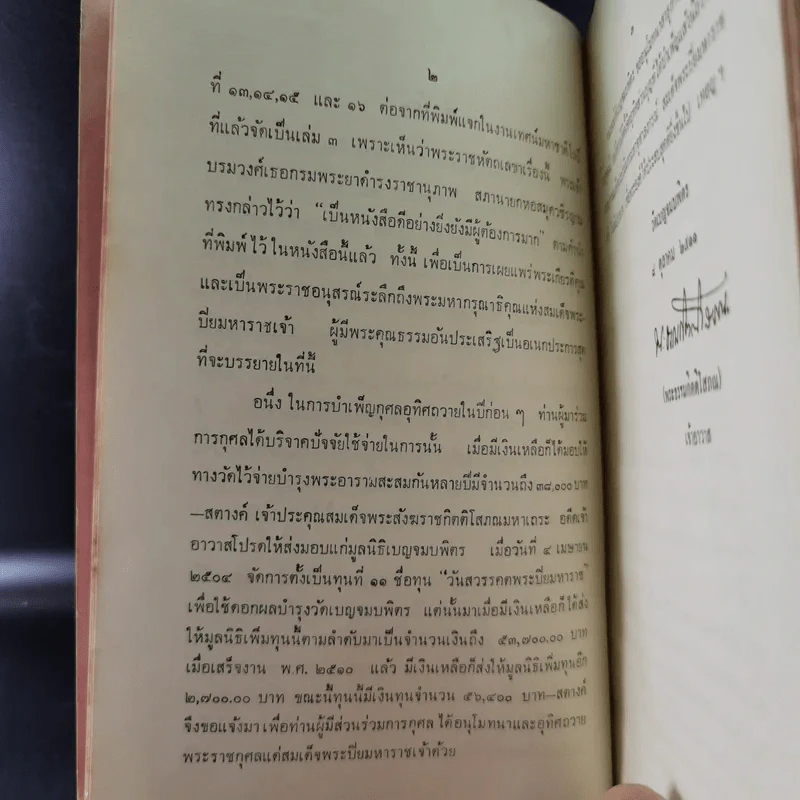 ๒
ที่ ๑๓,๑๔,๑๕ และ ๑๖ ต่อจากที่พิมพ์แจกในงานเทศน์มหาชาติ
ที่แล้วจัดเป็นเล่ม ๓ เพราะเห็นว่าพระราชหัตถเลขาเรื่องนี้
บรมวงศ์เธอกรมพระยาดำรงราชานุภาพ สภานายกหอสมุดวชิรญาณ
ทรงกล่าวไว้ว่า “เป็นหนังสือดีอย่างยิ่งยังมีผู้ต้องการมาก”
ที่พิมพ์ไว้ในหนังสือนี้แล้ว ทั้งนี้ เพื่อเป็นการเผยแพร่พระเกียรติคุณ
และเป็นพระราชอนุสรณ์ระลึกถึงพระมหากรุณาธิคุณแห่งสมเด็จพระ-
ปิยมหาราชเจ้า ผู้มีพระคุณธรรมอันประเสริฐเป็นอเนกประการสุด
ที่จะบรรยายในที่นี้
อนึ่ง ในการบำเพ็ญกุศลอุทิศถวายในปีก่อน ๆ ท่านผู้มาร่วม
การกุศลได้บริจาคปัจจัยใช้จ่ายในการนั้น เมื่อมีเงินเหลือก็ได้มอบให้
ทางวัดไว้จ่ายบำรุงพระอารามสะสมกันหลายปีมีจำนวนถึง ๓๘,๐๐๐ บาท
—สตางค์ เจ้าประคุณสมเด็จพระสังฆราชกิตติโสภณมหาเถระ อดีตเจ้า
อาวาสโปรดให้ส่งมอบแก่มูลนิธิเบญจมบพิตร เมื่อวันที่ ๔ เมษายน
๒๕๐๔ จัดการตั้งเป็นทุนที่ ๑๑ ชื่อทุน “วันสวรรคตพระปิยมหาราช”
เพื่อใช้ดอกผลบำรุงวัดเบญจมบพิตร แต่นั้นมาเมื่อมีเงินเหลือก็ได้ส่ง
ให้มูลนิธิเพิ่มทุนนี้ตามลำดับมาเป็นจำนวนเงินถึง ๕๓,๗๐๐.๐๐ บาท
เมื่อเสร็จงาน พ.ศ. ๒๕๑๐ แล้ว มีเงินเหลือก็ส่งให้มูลนิธิเพิ่มทุนอีก
๒,๗๐๐.๐๐ บาท ขณะนี้ทุนนี้มีเงินทุนจำนวน ๕๖,๔๐๐ บาท—สตางค์
จึงขอแจ้งมา เพื่อท่านผู้มีส่วนร่วมการกุศล ได้อนุโมทนาและอุทิศถวาย
พระราชกุศลแด่สมเด็จพระปิยมหาราชเจ้าด้วย
วัดเบญจมบพิตร
๔ ตุลาคม ๒๕๑๑
(พระธรรมกิตติโสภณ)
เจ้าอาวาส